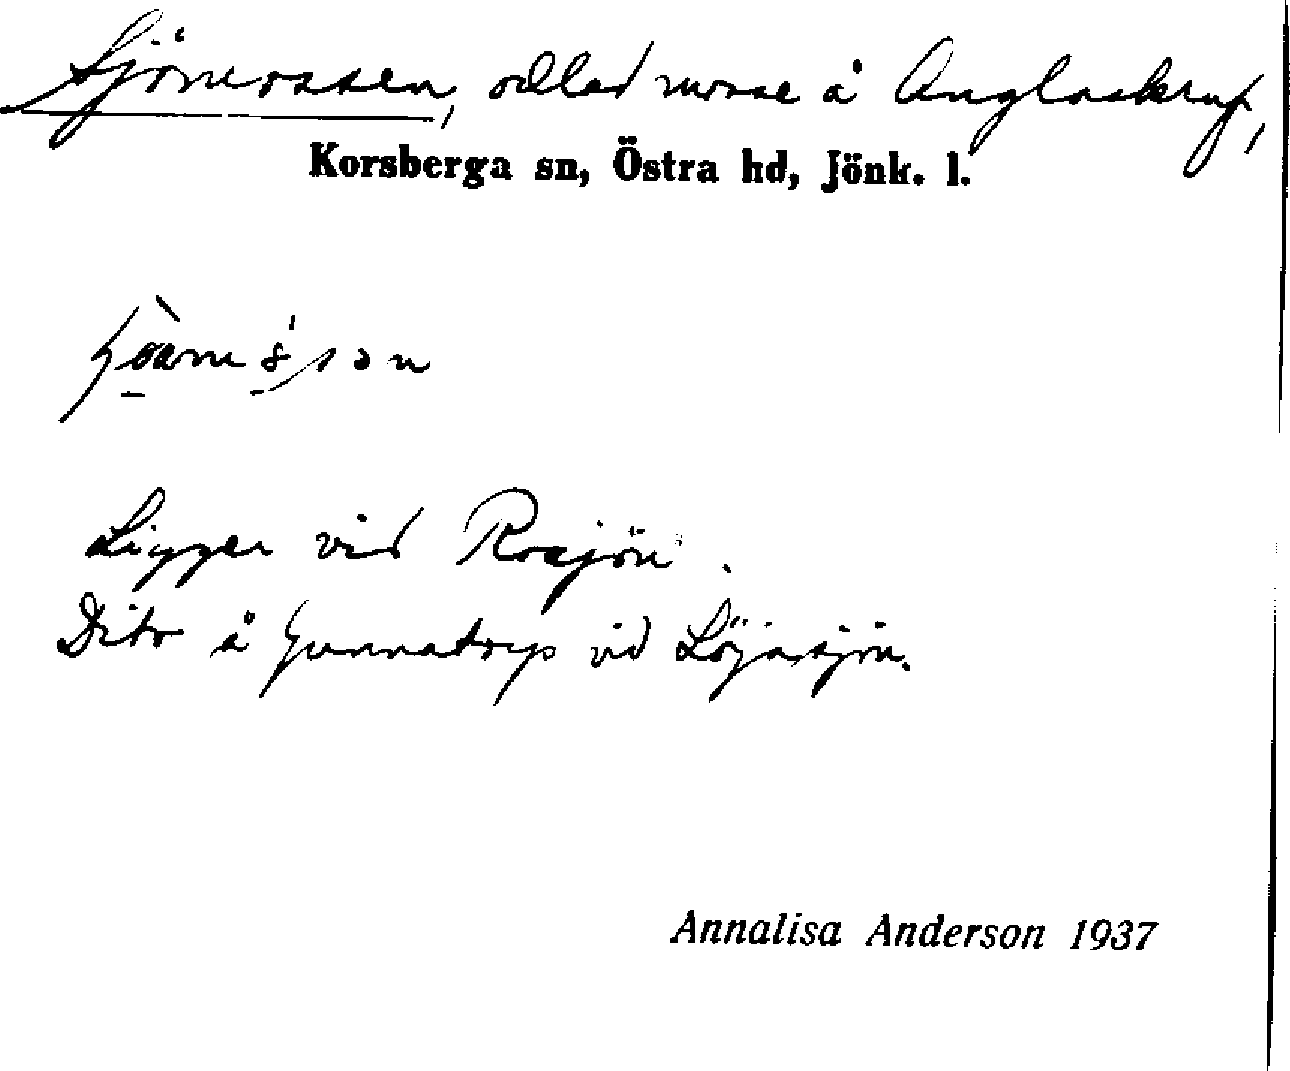 Sjömossen, odlad mosse å Anglaskrug,
Korsberga sn, Östra hd, Jönk. l.
Ligger vid Rosjön.
Dito å Gunnatorp vid Löjasjön.
Annalisa Anderson 1937